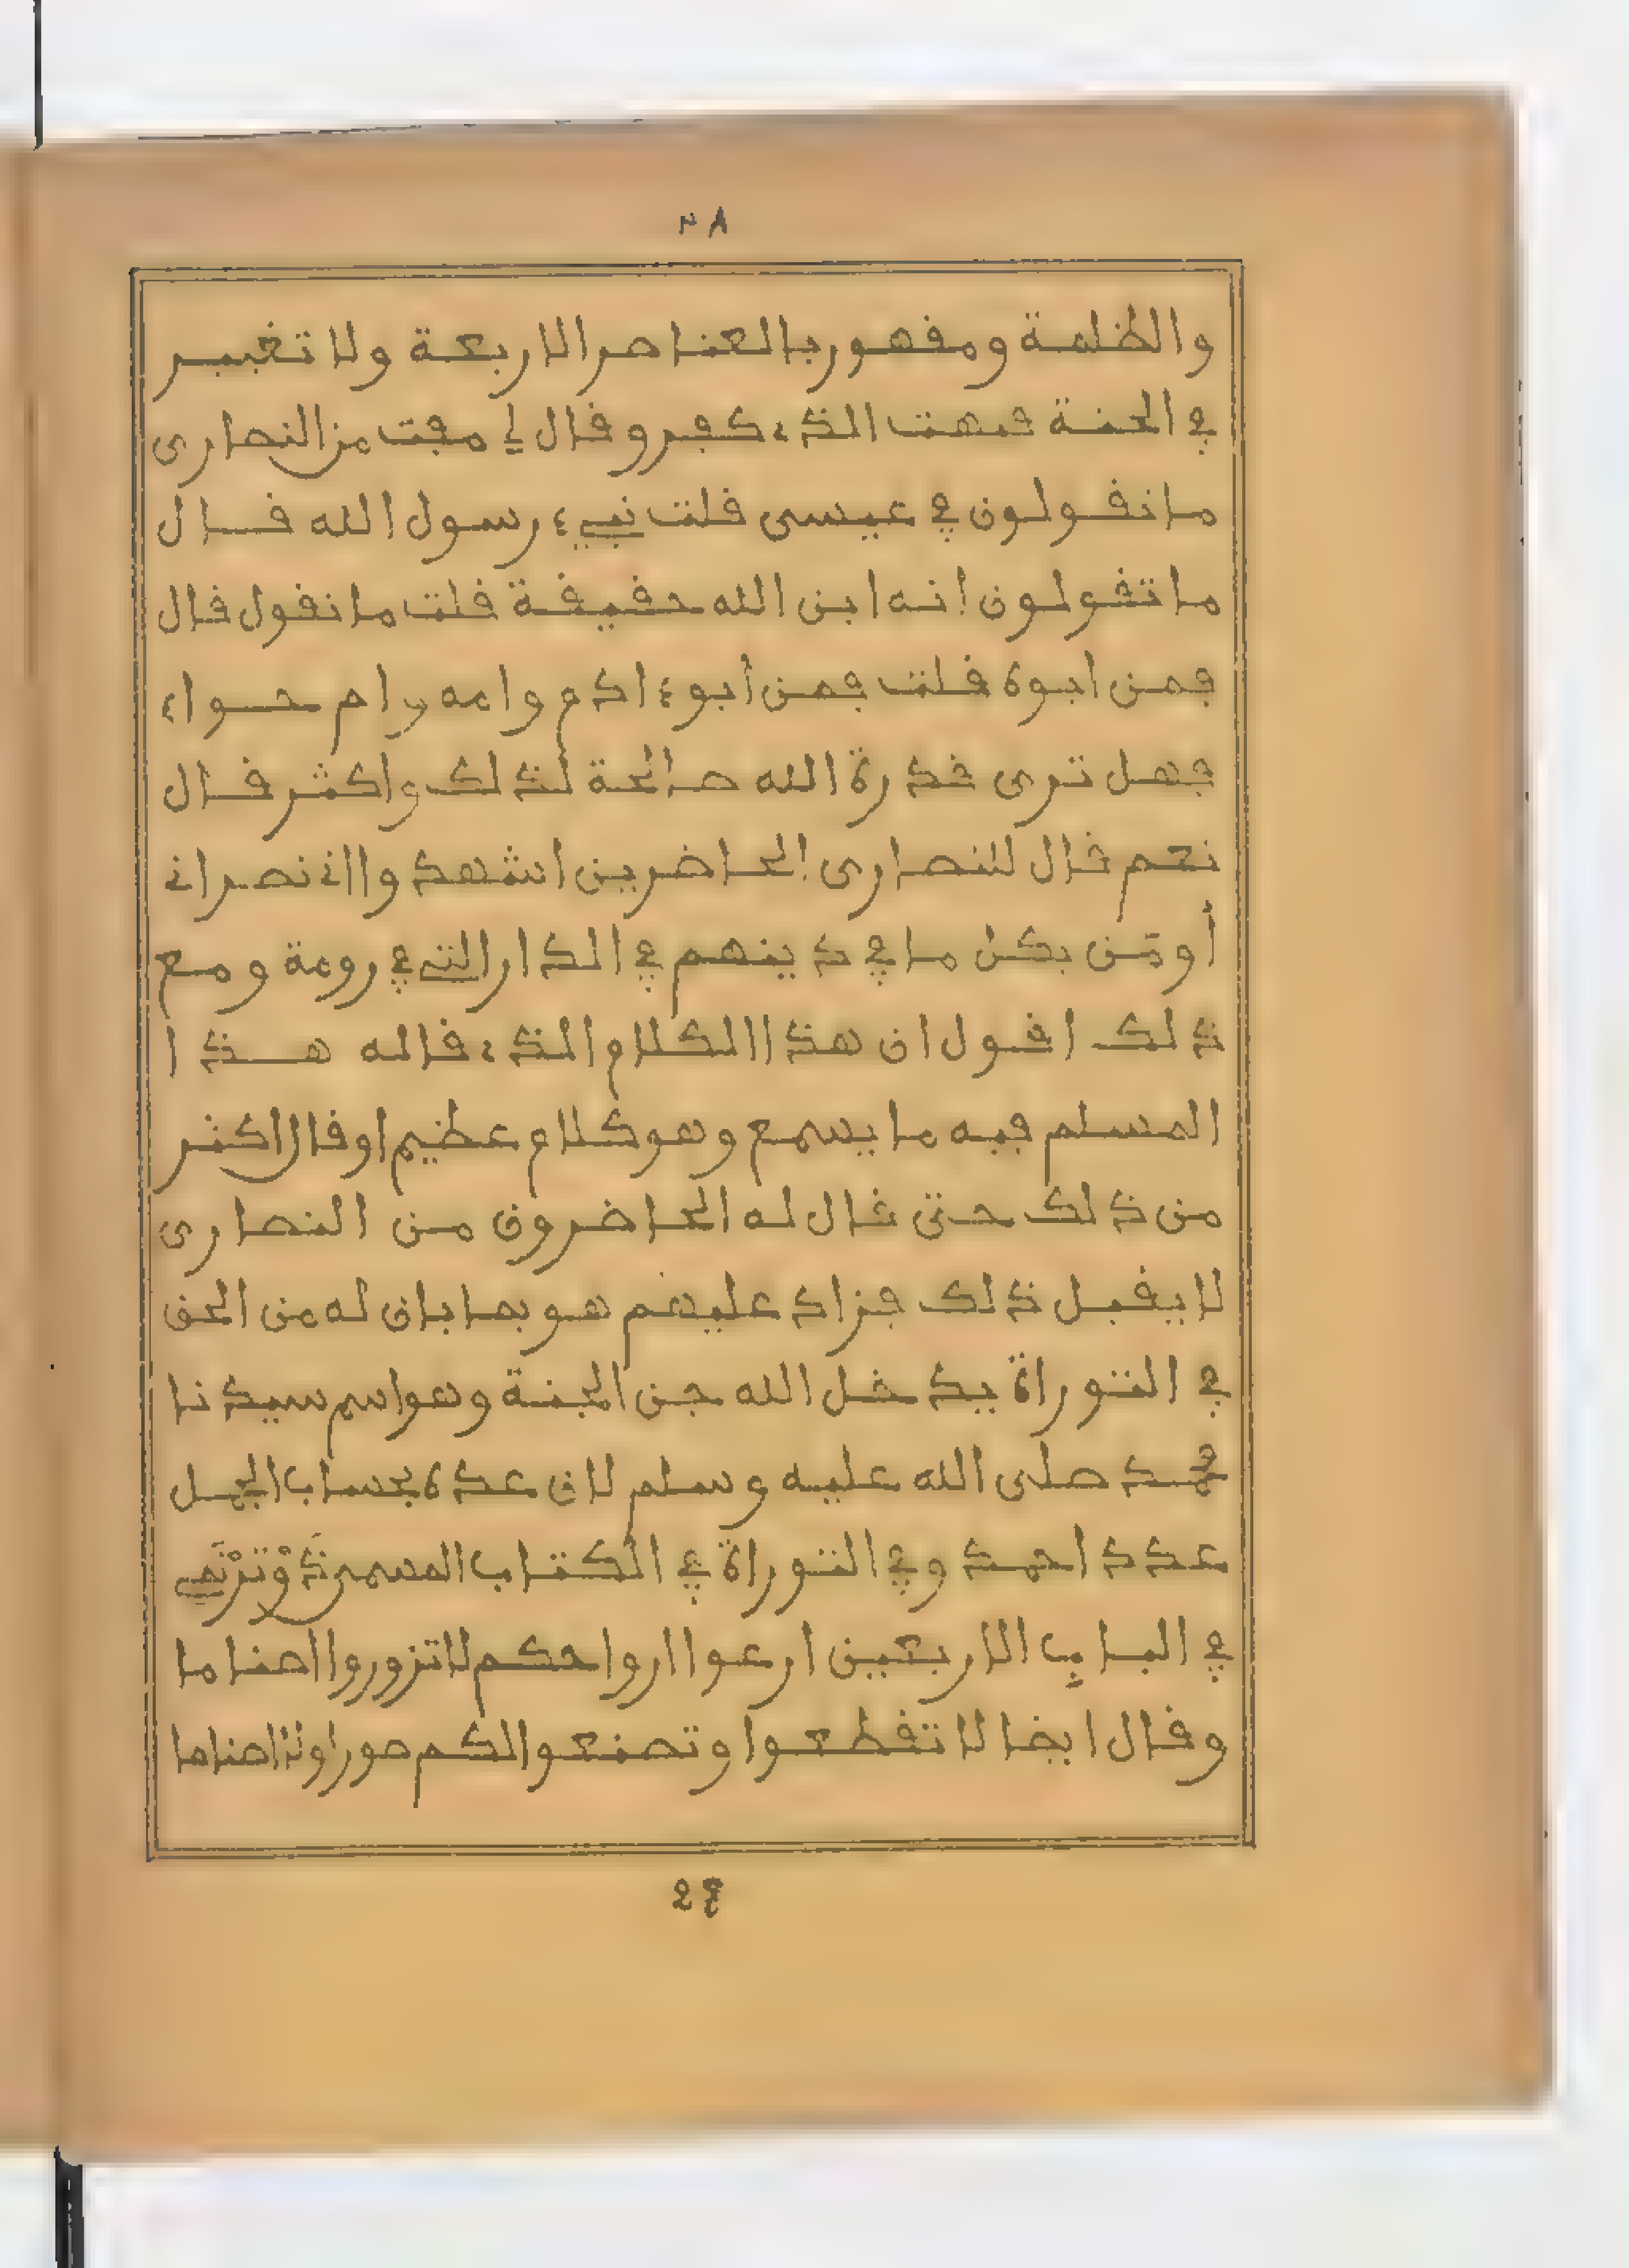 ٣٨
والظلمة ومقهور بالعناصر الاربعة ولا تغيير
في الجنة فبهت الذي كفر وقال لي مفت من النصارى
ما نقولون في عيسى قلت نبيء رسول الله قال
ما تقولون انه ابن الله حقيقة قلت ما نقول قال
فمن ابوه قلت فمن أبو ءادم وامه وام حواء
فهل ترى قدرة الله صالحة لذلك واكثر قال
نعم قال للنصارى الحاضرين اشهدوا اني نصراني
أومن بكل ما في دينهم في الدار التي في رومة ومع
ذلك اقول ان هذا الكلام الذي قاله هذا
المسلم فيه ما يسمع وهو كلام عظيم او قال اكثر
من ذلك حتى قال له الحاضرون من النصارى
لا يقبل ذلك فزاد عليهم هو بما بان له من الحق
في التوراة يدخل الله جن الجنة وهو اسم سيدنا
محمد صلى الله عليه وسلم لان عدده بحساب الجمل
عدد احمد وفي التوراة في الكتاب المسمى ذوترنمي
في الباب الاربعين ارعوا ارواحكم لا تزوروا اصناما
وقال ايضا لا تقطعوا وتصنعوا لكم صورا ولا اصناما
24